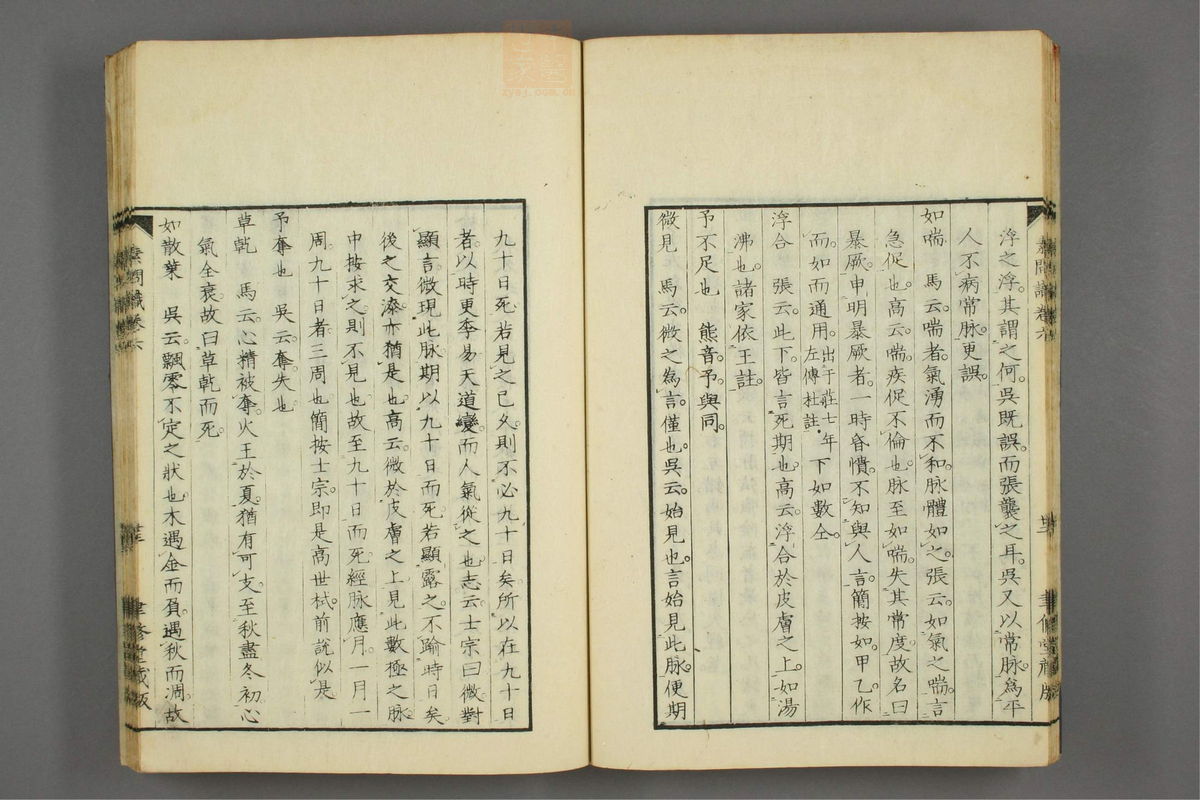 浮之浮。其謂之何。吳既誤。而張襲之耳。吳又以常脉。爲平
人不病常脉。更誤。
如喘 馬云。喘者。氣湧而不和。脉體如之。張云。如氣之喘。言
急促也。高云。喘。疾促不倫也。脉至如喘。失其常度。故名曰
暴厥。申明暴厥者。一時昏憒。不知與人言。簡按如。甲乙作
而。如而通用。出于莊七年
左傳杜註。下如數仝。
浮合 張云。此下。皆言死期也。高云。浮合於皮膚之上。如湯
沸也。諸家依王註。
予不足也 熊音。予。與同。
微見 馬云。微之為言。僅也。吳云。始見也。言始見此脉。便期
九十日死。若見之已久。則不必九十日矣。所以在九十日
者。以時更季易。天道變而人氣從之也。志云。士宗曰。微對
顯言。微現此脉。期以九十日而死。若顯露之。不踰時日矣。
後之交漆。亦猶是也。高云。微於皮膚之上。見此數極之脉。
中按求之。則不見也。故至九十日而死。經脉應月。一月一
周。九十日者。三周也。簡按士宗。即是高世栻。前說似是。
予奪也 吳云。奪。失也。
草乾 馬云。心精被奪。火王於夏。猶有可支。至秋盡冬初。心
氣全衰。故曰草乾而死。
如散葉 吳云。飄零不定之狀也。木遇金而負。遇秋而凋。故
素問識卷六
聿修堂藏版